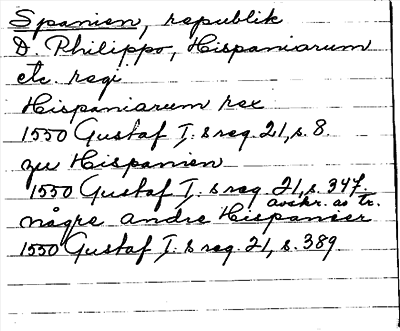 Spanien, republik
D. Philippo, Hispaniarum
etc. regi
Hispaniarum rex
1550 Gustaf I:s reg. 21, s. 8.
zu Hispanien
1550 Gustaf I:s reg. 21, s. 347.
avskr. as tr.
någre andre Hispanier
1550 Gustaf I:s reg. 21, s. 389.